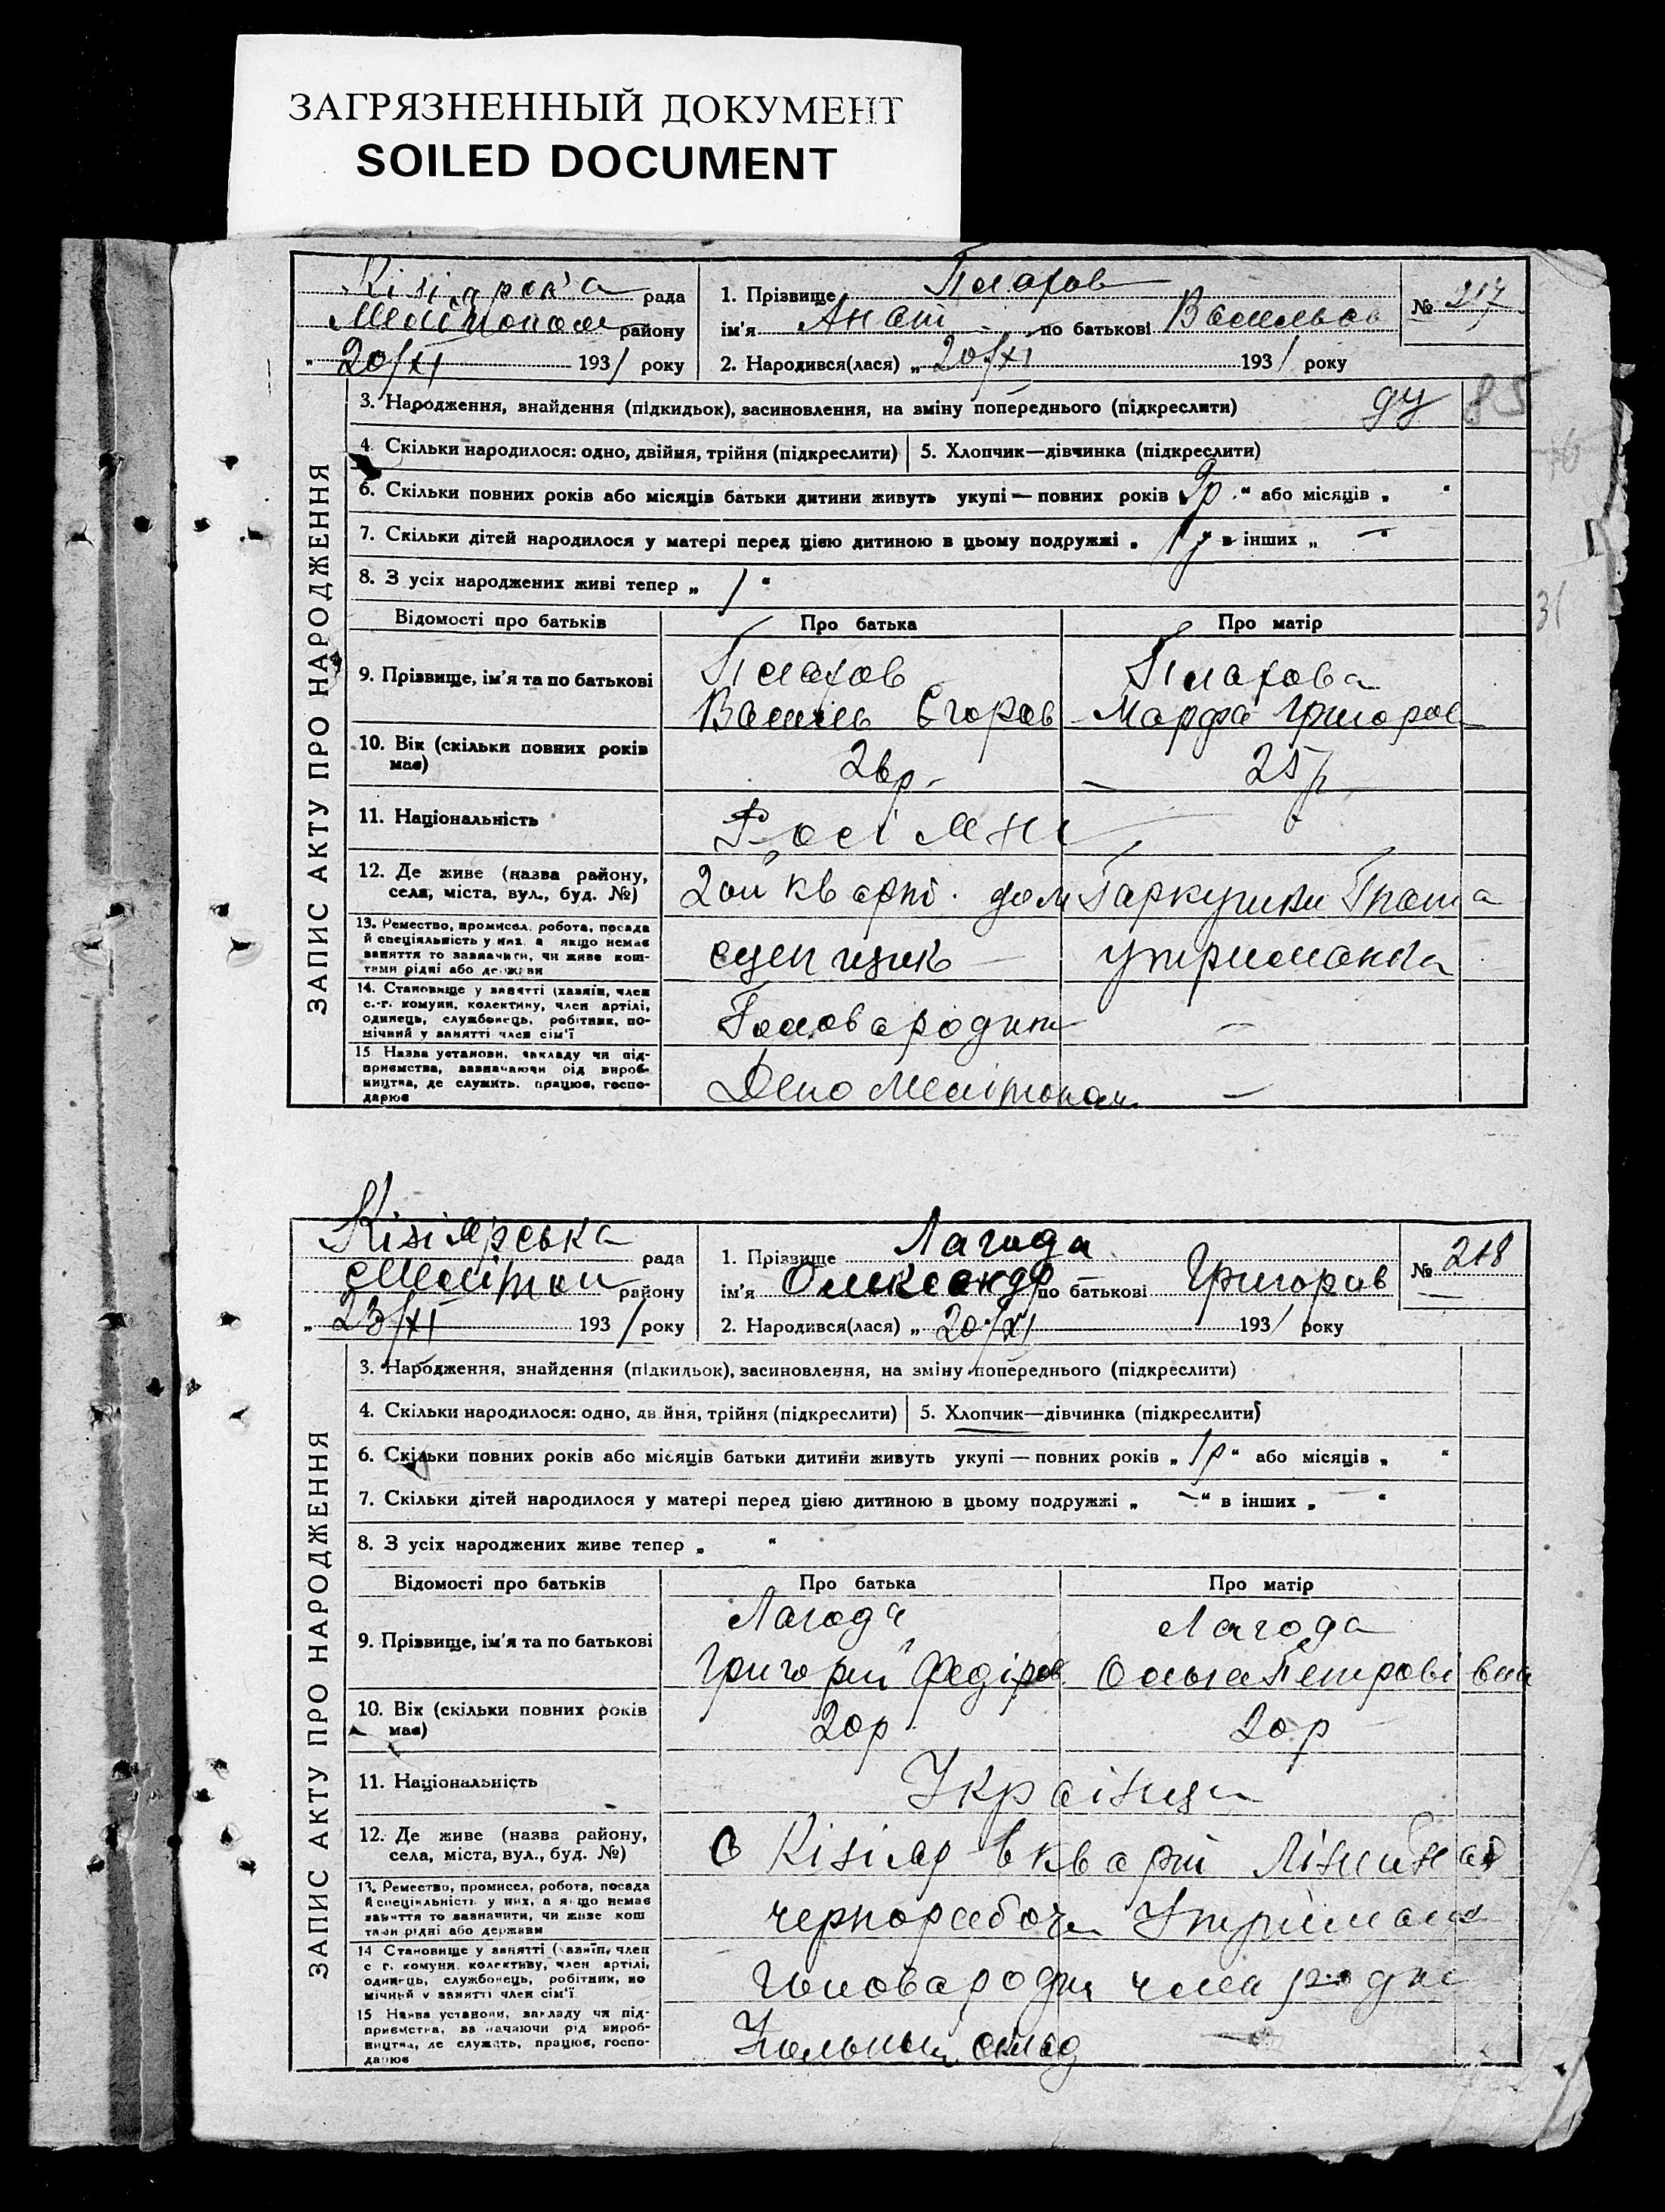 ЗАГРЯЗНЕННЫЙ ДОКУМЕНТ
SOILED DOCUMENT
ЗАПИС АКТУ ПРО НАРОДЖЕННЯ
рада
району
20/XI 1931 року
1. Прізвище Плахов
ім'я Анат по батькові
№ 217
2. Народився(лася) „ 20/XI 1931 року
3. Народження, знайдення (підкидьок), засиновлення, на зміну попереднього (підкреслити)
85
4. Скільки народилося: одно, двійня, трійня (підкреслити)
5. Хлопчик—дівчинка (підкреслити)
6. Скільки повних років або місяців батьки дитини живуть укупі — повних років „ “ або місяців „ “
7. Скільки дітей народилося у матері перед цією дитиною в цьому подружжі „ 1 “ в інших „ — “
8. З усіх народжених живі тепер „ 1 “
31
Відомості про батьків Про батька Про матір
9. Прізвище, ім'я та по батькові
Плахов Плахова
Василь Єгоров Марфа Григоров
10. Вік (скільки повних років має)
26р. 25р
11. Національність
Росіяни
12. Де живе (назва району, села, міста, вул., буд. №)
2ой кварт. дом Гаркушки
13. Ремество, промисел, робота, посада й спеціяльність у них, а якщо немає заняття то зазначити, чи живе коштами рідні або держави
сцепщик утриманка
14. Становище у занятті (хазяїн, член с.-г. комуни, колективу, член артілі, одинець, службовець, робітник, помічний у занятті член сім'ї
Голова родини —
15 Назва установи, закладу чи підприємства, зазначаючи рід виробництва, де служить, працює, господарює
Депо Мелітополь —
ЗАПИС АКТУ ПРО НАРОДЖЕННЯ
Кізіярська рада
Мелітоп району
„ 23/XI 1931 року
1. Прізвище Лагода
ім'я Олександр по батькові Григоров
№ 218
2. Народився(лася) „ 20/XI 1931 року
3. Народження, знайдення (підкидьок), засиновлення, на зміну попереднього (підкреслити)
4. Скільки народилося: одно, двійня, трійня (підкреслити)
5. Хлопчик—дівчинка (підкреслити)
6. Скільки повних років або місяців батьки дитини живуть укупі — повних років „ 1р “ або місяців „ “
7. Скільки дітей народилося у матері перед цією дитиною в цьому подружжі „ — “ в інших „ “
8. З усіх народжених живе тепер „ “
Відомості про батьків Про батька Про матір
9. Прізвище, ім'я та по батькові
Лагода Лагода
Григорій Федіров Ольга Петровівна
10. Вік (скільки повних років має)
20р 20р
11. Національність
Українци
12. Де живе (назва району, села, міста, вул., буд. №)
с Кізіяр кварт
13. Ремество, промисел, робота, посада й спеціяльність у них, а якщо немає заняття то зазначити, чи живе коштами рідні або держави
чернорабоч Утриман
14 Становище у занятті (хазяїн, член с г. комуни, колективу, член артілі, одинець, службовець, робітник, помічний у занятті член сім'ї
Голова родин член родни
15 Назва установи, закладу чи підприємства, зазначаючи рід виробництва, де служать, працює, господарює
склад —